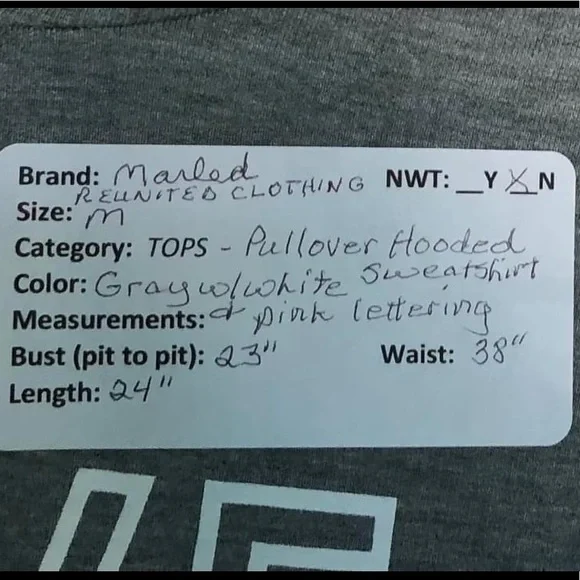 Brand: Marled NWT: __Y X N
REUNITED CLOTHING
Size: m
Category: TOPS - Pullover Hooded
Sweatshirt
Color: Gray w/white
Measurements: & pink lettering
Bust (pit to pit): 23" Waist: 38"
Length: 24"